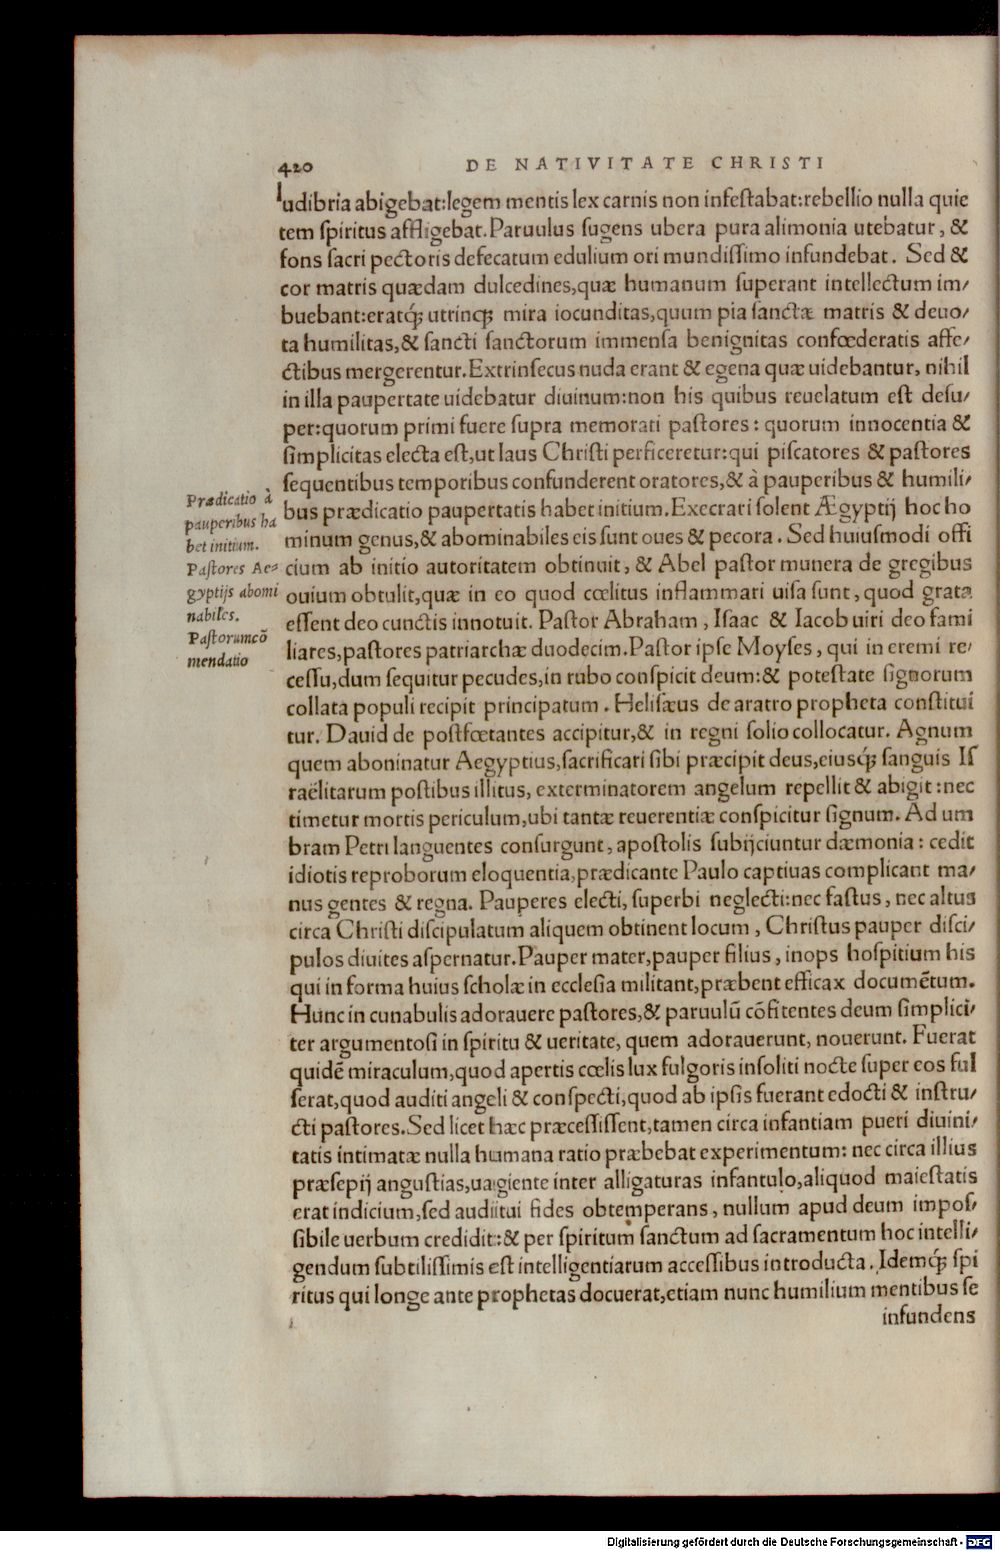 420 DE NATIVITATE CHRISTI
ludibria abigebat:legem mentis lex carnis non infestabat:rebellio nulla quie
tem spiritus affligebat.Paruulus sugens ubera pura alimonia utebatur, &
fons sacri pectoris defecatum edulium ori mundissimo infundebat. Sed &
cor matris quædam dulcedines,quæ humanum superant intellectum im/
buebant:eratq; utrinq; mira iocunditas,quum pia sanctæ matris & deuo/
ta humilitas,& sancti sanctorum immensa benignitas confœderatis affe/
ctibus mergerentur.Extrinsecus nuda erant & egena quæ uidebantur, nihil
in illa paupertate uidebatur diuinum:non his quibus reuelatum est desu/
per:quorum primi fuere supra memorati pastores: quorum innocentia &
simplicitas electa est,ut laus Christi perficeretur:qui piscatores & pastores
sequentibus temporibus confunderent oratores,& à pauperibus & humili/
bus prædicatio paupertatis habet initium.Execrari solent Ægyptij hoc ho
minum genus,& abominabiles eis sunt oues & pecora. Sed huiusmodi offi
cium ab initio autoritatem obtinuit, & Abel pastor munera de gregibus
ouium obtulit,quæ in eo quod cœlitus inflammari uisa sunt, quod grata
essent deo cunctis innotuit. Pastor Abraham, Isaac & Iacob uiri deo fami
liares,pastores patriarchæ duodecim.Pastor ipse Moyses, qui in eremi re/
cessu,dum sequitur pecudes,in rubo conspicit deum:& potestate signorum
collata populi recipit principatum. Helisæus de aratro propheta constitui
tur. Dauid de postfœtantes accipitur,& in regni solio collocatur. Agnum
quem aboninatur Aegyptius,sacrificari sibi præcipit deus,eiusq; sanguis Is
raëlitarum postibus illitus, exterminatorem angelum repellit & abigit:nec
timetur mortis periculum,ubi tantæ reuerentiæ conspicitur signum. Ad um
bram Petri languentes consurgunt, apostolis subijciuntur dæmonia: cedit
idiotis reproborum eloquentia,prædicante Paulo captiuas complicant ma/
nus gentes & regna. Pauperes electi, superbi neglecti:nec fastus, nec altus
circa Christi discipulatum aliquem obtinent locum, Christus pauper disci/
pulos diuites aspernatur.Pauper mater,pauper filius, inops hospitium his
qui in forma huius scholæ in ecclesia militant,præbent efficax documētum.
Hunc in cunabulis adorauere pastores,& paruulū cōfitentes deum simplici/
ter argumentosi in spiritu & ueritate, quem adorauerunt, nouerunt. Fuerat
quidē miraculum,quod apertis cœlis lux fulgoris insoliti nocte super eos ful
serat,quod auditi angeli & conspecti,quod ab ipsis fuerant edocti & instru/
cti pastores.Sed licet hæc præcessissent,tamen circa infantiam pueri diuini/
tatis intimatæ nulla humana ratio præbebat experimentum: nec circa illius
præsepij angustias,uagiente inter alligaturas infantulo,aliquod maiestatis
erat indicium,sed auditui fides obtemperans, nullum apud deum impos/
sibile uerbum credidit:& per spiritum sanctum ad sacramentum hoc intelli/
gendum subtilissimis est intelligentiarum accessibus introducta. Idemq; spi
ritus qui longe ante prophetas docuerat,etiam nunc humilium mentibus se
infundens
Prædicatio à
pauperibus ha
bet initium.
Pastores Ae=
gyptijs abomi
nabiles.
Pastorum cō
mendatio
Digitalisierung gefördert durch die Deutsche Forschungsgemeinschaft - DFG